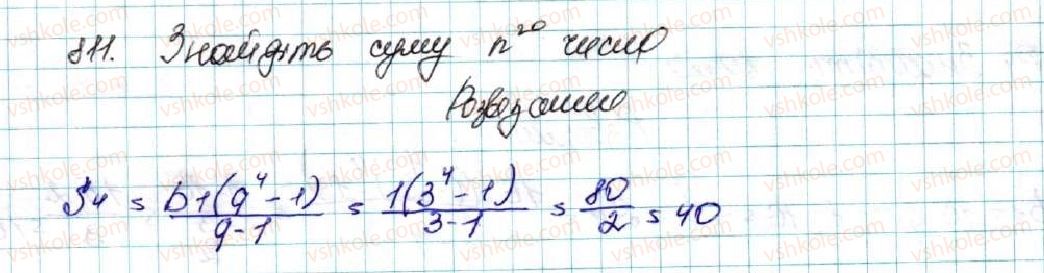 811. Знайдіть суму n²⁰ число
Розвязання
S4 = b1(q⁴-1)/q-1 = 1(3⁴-1)/3-1 = 80/2 = 40
vshkole.com